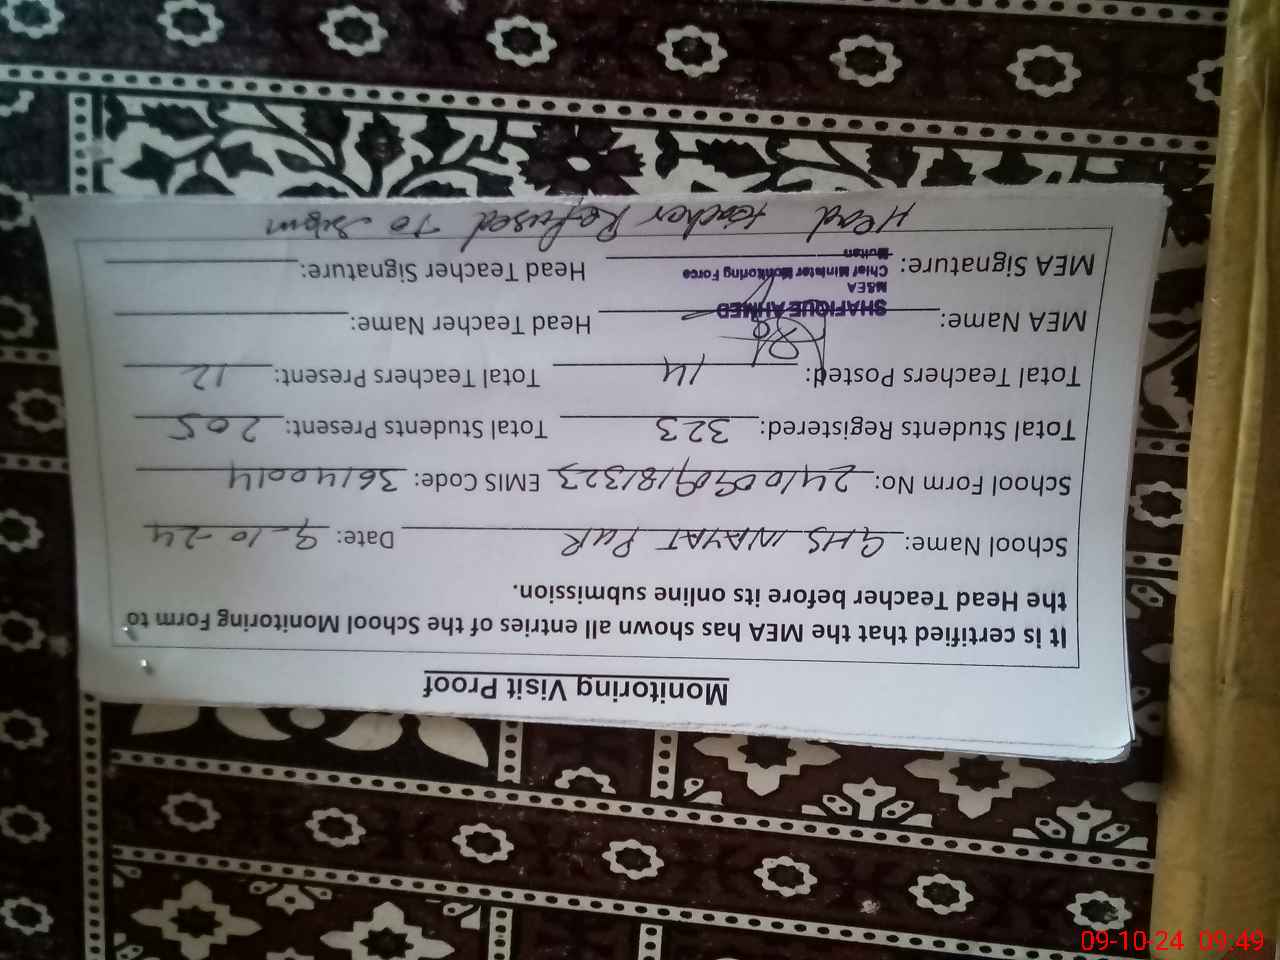 Monitoring Visit Proof
It is certified that the MEA has shown all entries of the School Monitoring Form to
the Head Teacher before its online submission.
School Name: GHS INAYAT PUR Date: 9-10-24
School Form No: 24100909181323 EMIS Code: 36140014
Total Students Registered: 323 Total Students Present: 205
Total Teachers Posted: 14 Total Teachers Present: 12
MEA Name: SHAFIQUE AHMED Head Teacher Name:
M&EA
Chief Minister Monitoring Force
Multan
MEA Signature: Head Teacher Signature:
Head teacher Refused To sign
09-10-24 09:49